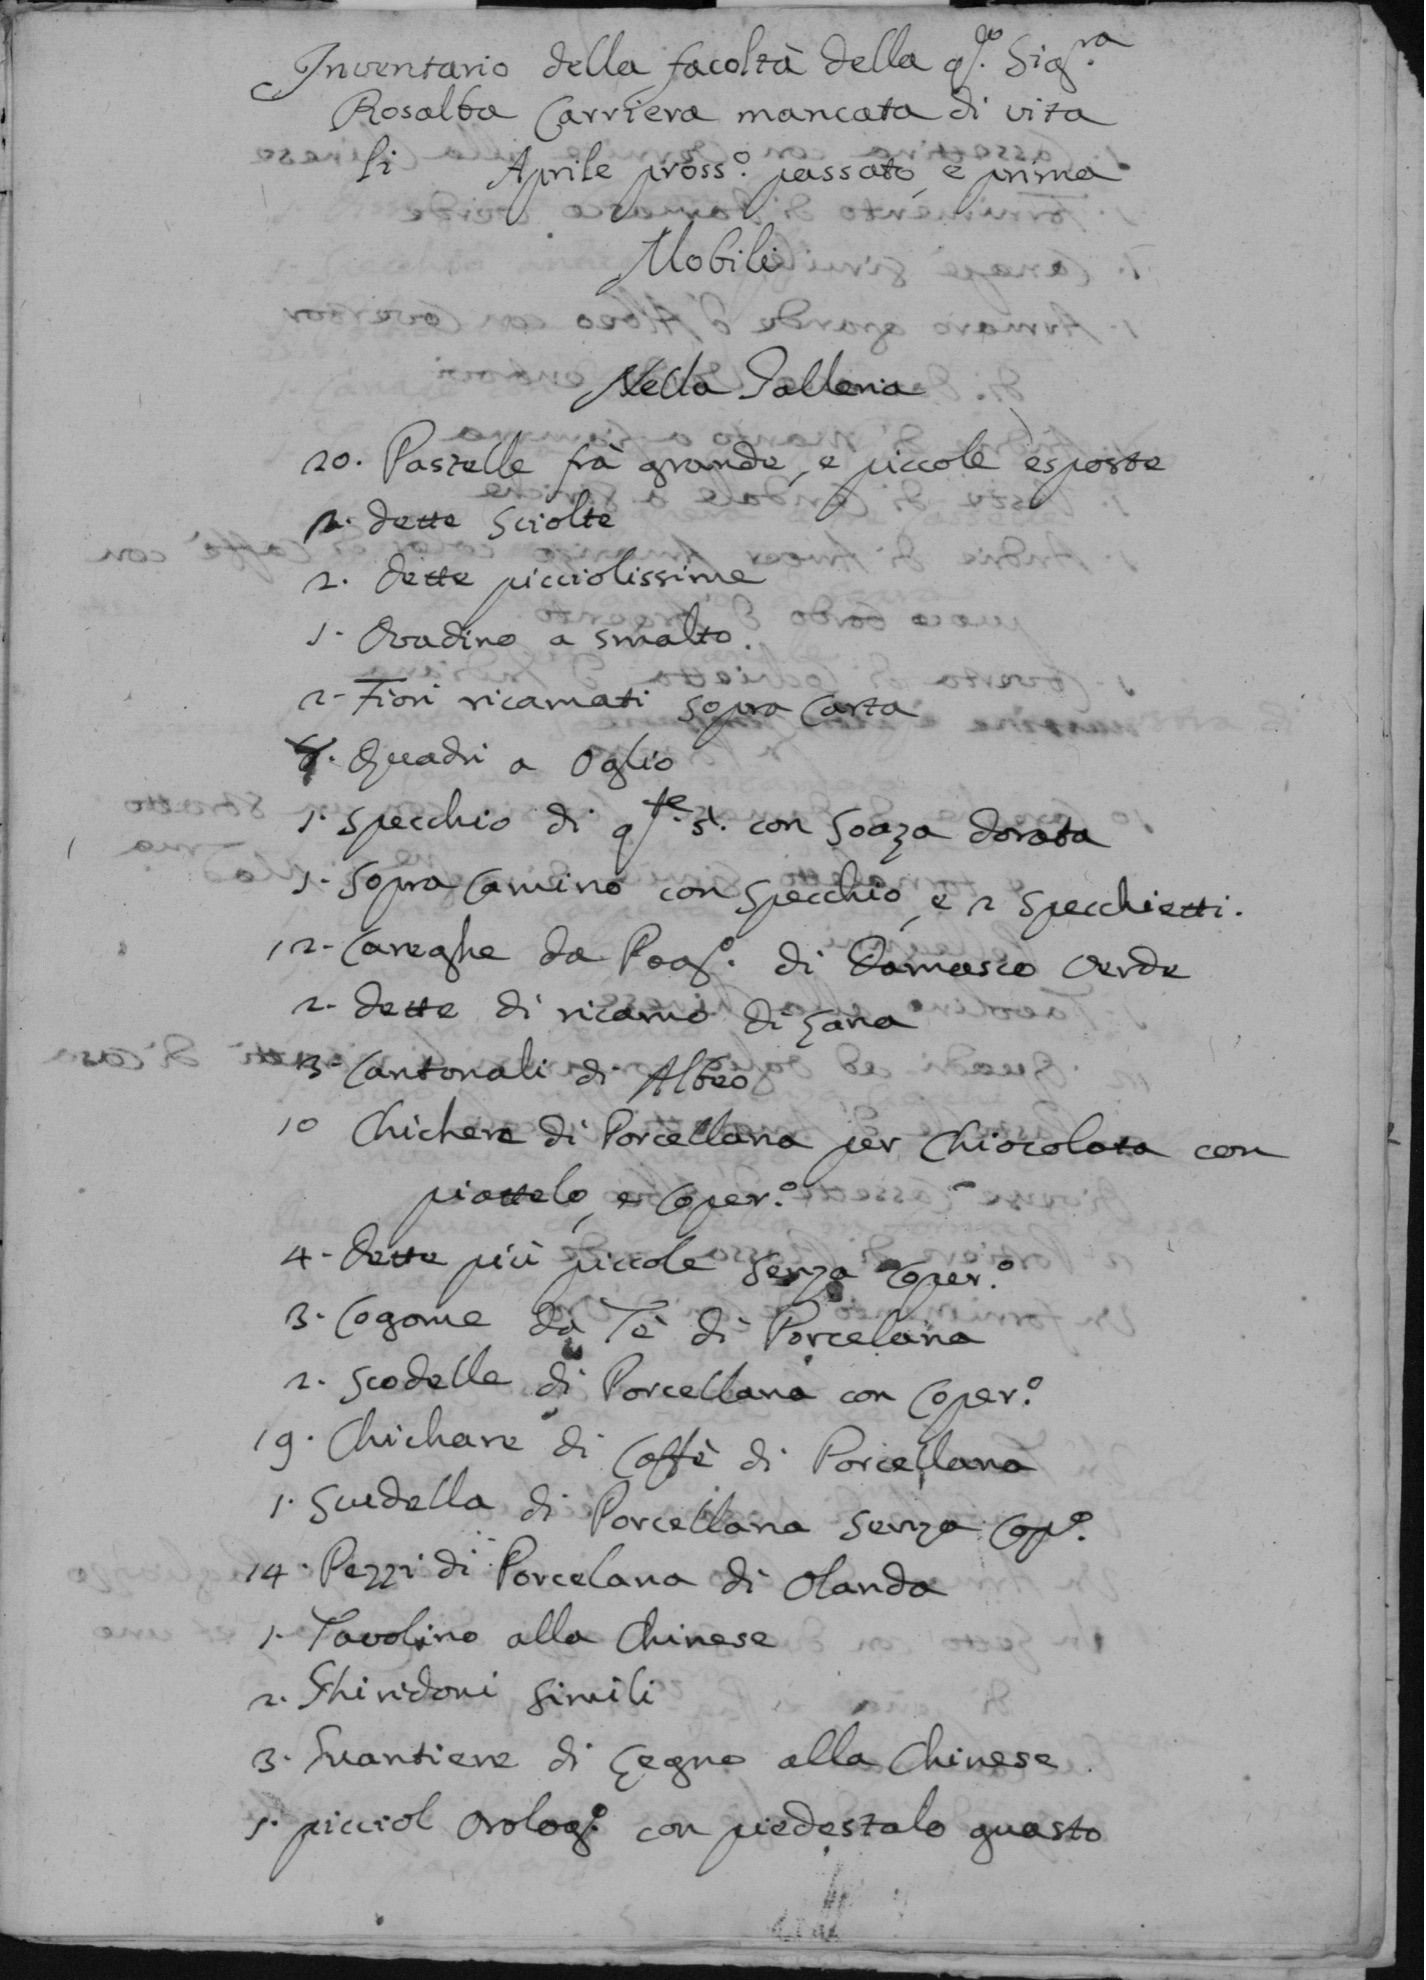 Inventario della facoltà della q.do Sig.ra
Rosalba Carriera mancata di vita
li Aprile pross.o passato, e prima
Mobili
Nella Galleria
20. Pastelle frà grande, e piccole esposte
2. dette sciolte
2. dette picciolissime
1. Ovadino a smalto.
2. Fiori ricamati sopra Carta
8. Quadri a Oglio
1. Specchio di q.te s. con Soaza dorata
1. Sopra Camino con Specchio, e 2 Specchietti.
12. Careghe da Pog.o di Damasco Verde
2. dette di ricamo di Lana
3. Cantonali di Albeo
10 Chichere di Porcellana per Chiocolata con
piattelo, e Coper.o
4. dette più piccole Senza Coper.o
3. Cogome da Tè di Porcelana
2. Scodelle di Porcellana con Coper.o
19. Chichare di Caffè di Porcellana
1. Scudella di Porcellana Senza Cop.o
14. Pezzi di Porcelana di Olanda
1. Tavolino alla Chinese
2. Ghiridoni Simili
3. Guantiere di Legno alla Chinese
1. picciol Orolog.o con piedestalo guasto